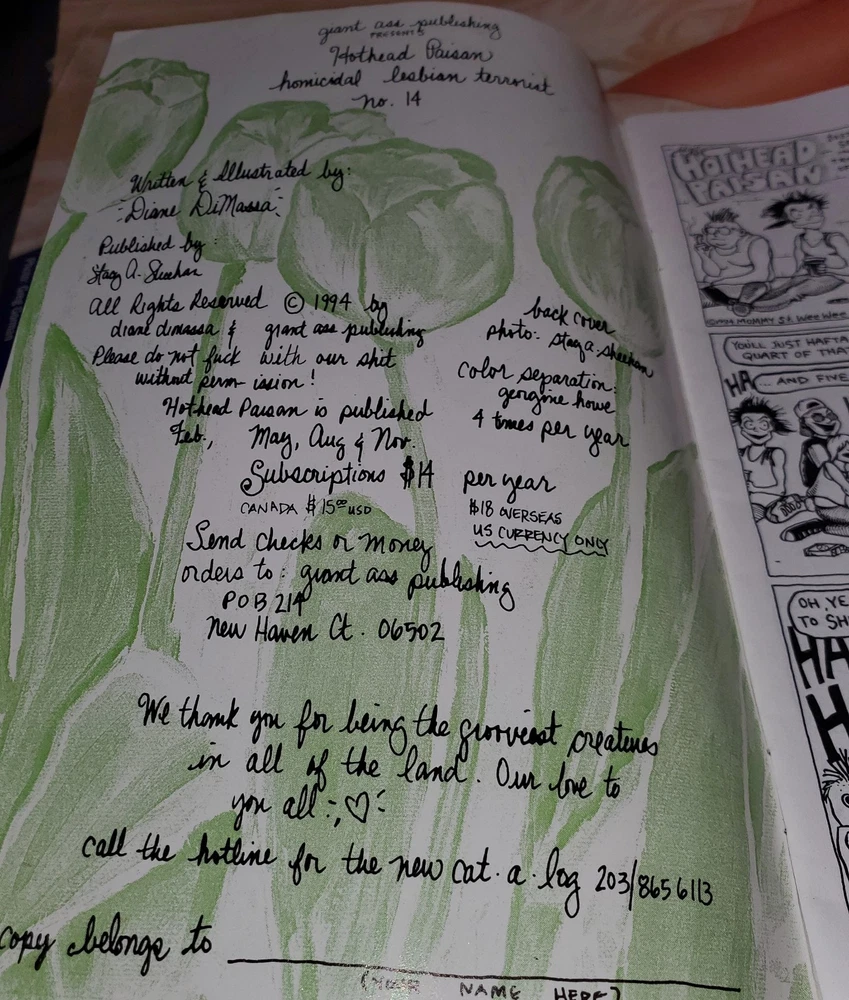 giant ass publishing
PRESENTS
Hothead Paisan
homicidal lesbian terrorist
no. 14
Written & Illustrated by:
Diane DiMassa
Published by:
Stacy A. Sheehan
All Rights Reserved © 1994 by
diane dimassa & giant ass publishing
Please do not fuck with our shit
without perm ission!
Hothead Paisan is published
Feb., May, Aug & Nov.
back cover
photo: stacy a. sheehan
color separation:
georgine howe
4 times per year
Subscriptions $14 per year
CANADA $15.00 USD
$18 OVERSEAS
US CURRENCY ONLY
Send checks or money
orders to: giant ass publishing
POB 214
New Haven Ct. 06502
We thank you for being the grooviest creatures
in all of the land. Our love to
you all ♡
call the hotline for the new cat·a·log 203/865 6113
copy belongs to
(YOUR NAME HERE)
HOTHEAD
PAISAN
MOMMY St. Wee Wee
YOU'LL JUST HAFTA
QUART OF THAT
HA... AND FIVE
OH, YE
TO SH
HA
H